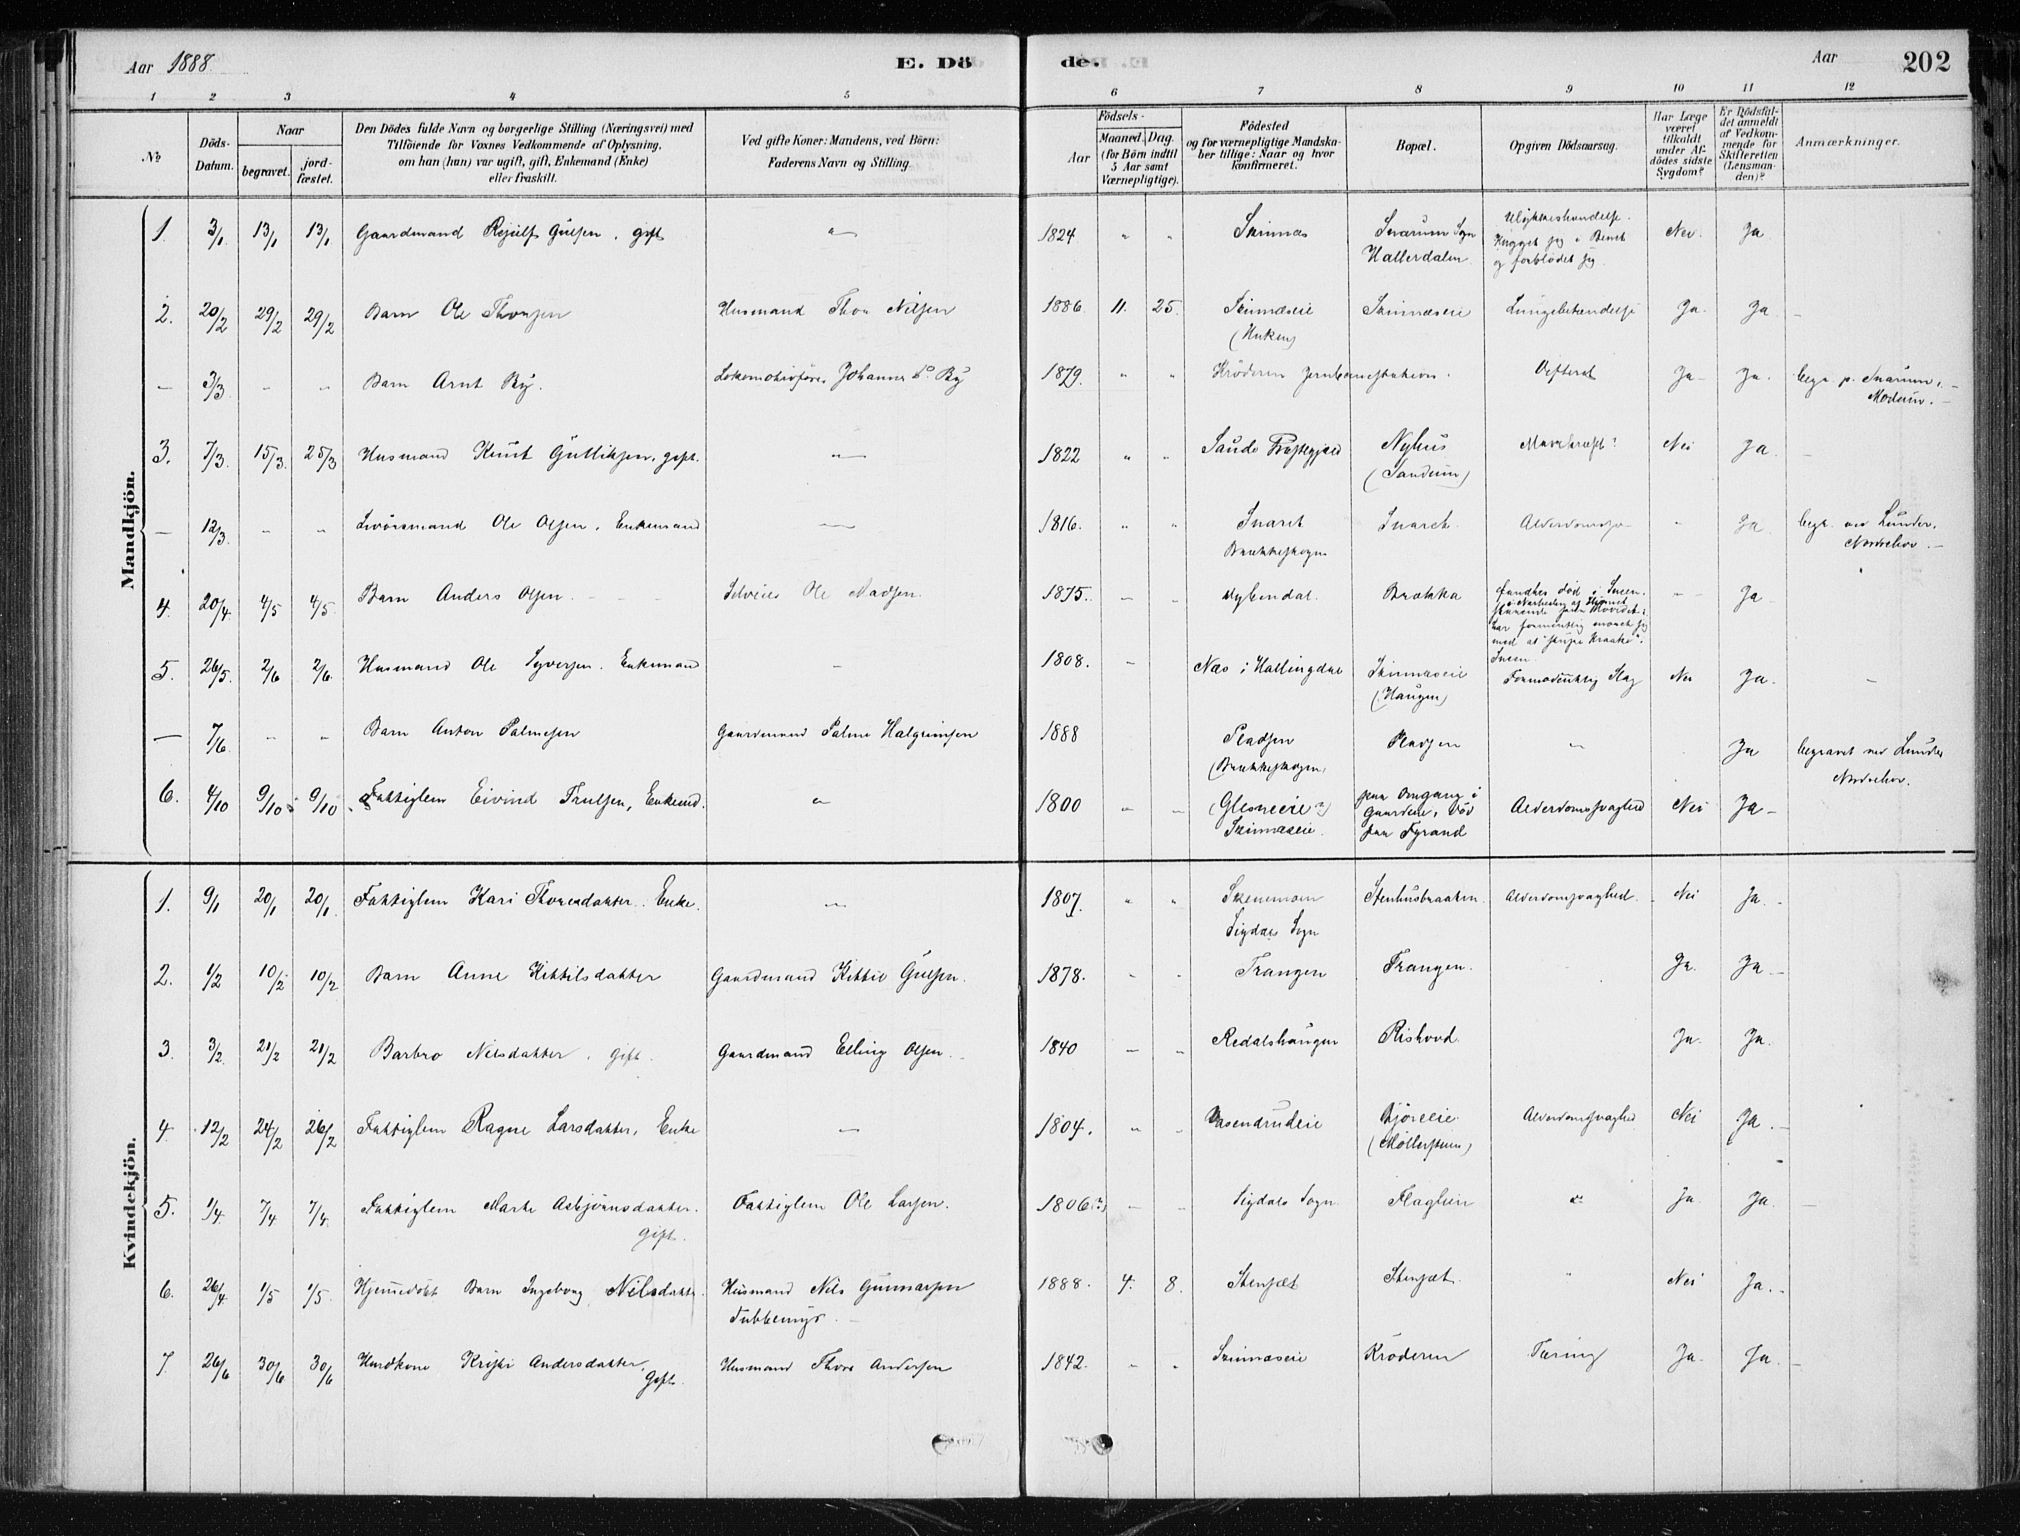 Aar 1888.
E. Dö
de.
Aar
202
1 2 3 4 5 6 7 8 9 10 11 12
No
Döds-Datum.
Naar
begravet.
jord-fæstet.
Den Dödes fulde Navn og borgerlige Stilling (Næringsvei) med
Tilföiende for Voxnes Vedkommende af Oplysning,
om han (hun) var ugift, gift, Enkemand (Enke)
eller fraskilt.
Ved gifte Koner: Mandens, ved Börn:
Faderens Navn og Stilling.
Födsels-
Aar
Maaned. Dag.
(for Börn indtil
5 Aar samt
Værnepligtige).
Födested
og for værnepligtige Mandska-
ber tillige: Naar og hvor
konfirmeret.
Bopæl.
Opgiven Dödsaarsag.
Har Læge
været
tilkaldt
under Af-
dödes sidste
Sygdom?
Er Dödsfal-
det anmeldt
af Vedkom-
mende for
Skifteretten
(Lensman-
den)?
Anmærkninger.
Mandkjön.
1. 3/1 13/1 13/1 Gaardmand Rejulf Gulsen, gift " 1824 " " Skinnes Snarum Sogn Hallerdalen Ulykkeshændelse. Hugget sig i Benet og forblødet sig Nei. Ja
2. 20/2 29/2 29/2 Barn Ole Thonsen Husmand Thon Nilsen 1886 11. 25. Skinnæseie (Huken) Skinnæseie Lungebetændelse Ja. Ja. —
— 3/3 " " Barn Arnt By. Lokomotivfører Johannes By 1879. " " Krøderen Jernbanestation. Ja Ja. begr. p. Snarum, Modum. —
3. 7/3. 15/3. 25/3 Husmand Knut Gulliksen, gift. " 1822 " " Saude Præstegjeld Nyhus (Sandum) Mavekræft? Nei Ja. —
— 12/3. " " Ole Olsen, Enkemand — 1816. " " Snaret Brekkeskogen Snaret Ja. begr. ved Lunder, Norderhov. —
4. 20/4. 4/5 4/5 Barn Anders Olsen Ole Madsen. 1875. " " Brekka fandtes død i Sneen. Ja
5. 26/5. 2/6 2/6. Husmand Ole Syversen. Enkemand — 1808. — Næs i Hallingdal Skinnæseie (Haugen) Formodentlig Slag Nei Ja. —
— 7/6. " " Barn Anton Palmesen Gaardmand Palme Halgrimsen 1888 Pladsen (Brekkeskogen) Pladsen " Ja begravet ved Lunder Norderhov.
6. 4/10 9/10 9/10 Fattiglem Eivind Trulsen, Enkemd. " 1800 " " (Glesneeie?) Skinnæseie. paa Omgang i Gaardene, død paa Fyrand Alderdomssvaghed Nei Ja —
Kvindekjön.
1. 9/1 20/1 20/1. Fattiglem Kari Thoresdatter. Enke. " 1807. " " Skenemoen Sigdals Sogn Stenhusbraaten. Alderdomssvaghed. Nei Ja. —
2. 1/2 10/2 10/2 Barn Anne Kittilsdatter Gaardmand Kittil Gulsen. 1878. " " Frangen Frangen. Ja. Ja —
3. 3/2. 21/2 21/2 Barbro Nilsdatter, gift. Gaardmand Elling Olsen. 1840 — " Redalshaugen Rishovd. Ja. Ja.
4. 12/2 24/2 26/2 Fattiglem Ragne Larsdatter, Enke — 1804. " " Bjøreeie (Møllerstuen) Alderdomssvaghed Nei Ja. —
5. 1/4. 7/4 7/4. Fattiglem Marte Asbjørnsdatter. gift. Fattiglem Ole Larsen. 1806(?) — — Sigdals Sogn Flaglien " Ja. Ja. —
6. 26/4. 1/5 1/5. Hjemmedøbt Barn Ingeborg Nilsdatter. Husmand Nils Gunnarsen 1888. 4. 8. Stensæt Stensæt. " Nei Ja. —
7. 26/6 30/6 30/6 Kristi Andersdatter, gift. Husmand Thore Andersen 1842. " " Skinnæseie Krøderen Tæring Ja. Ja. —